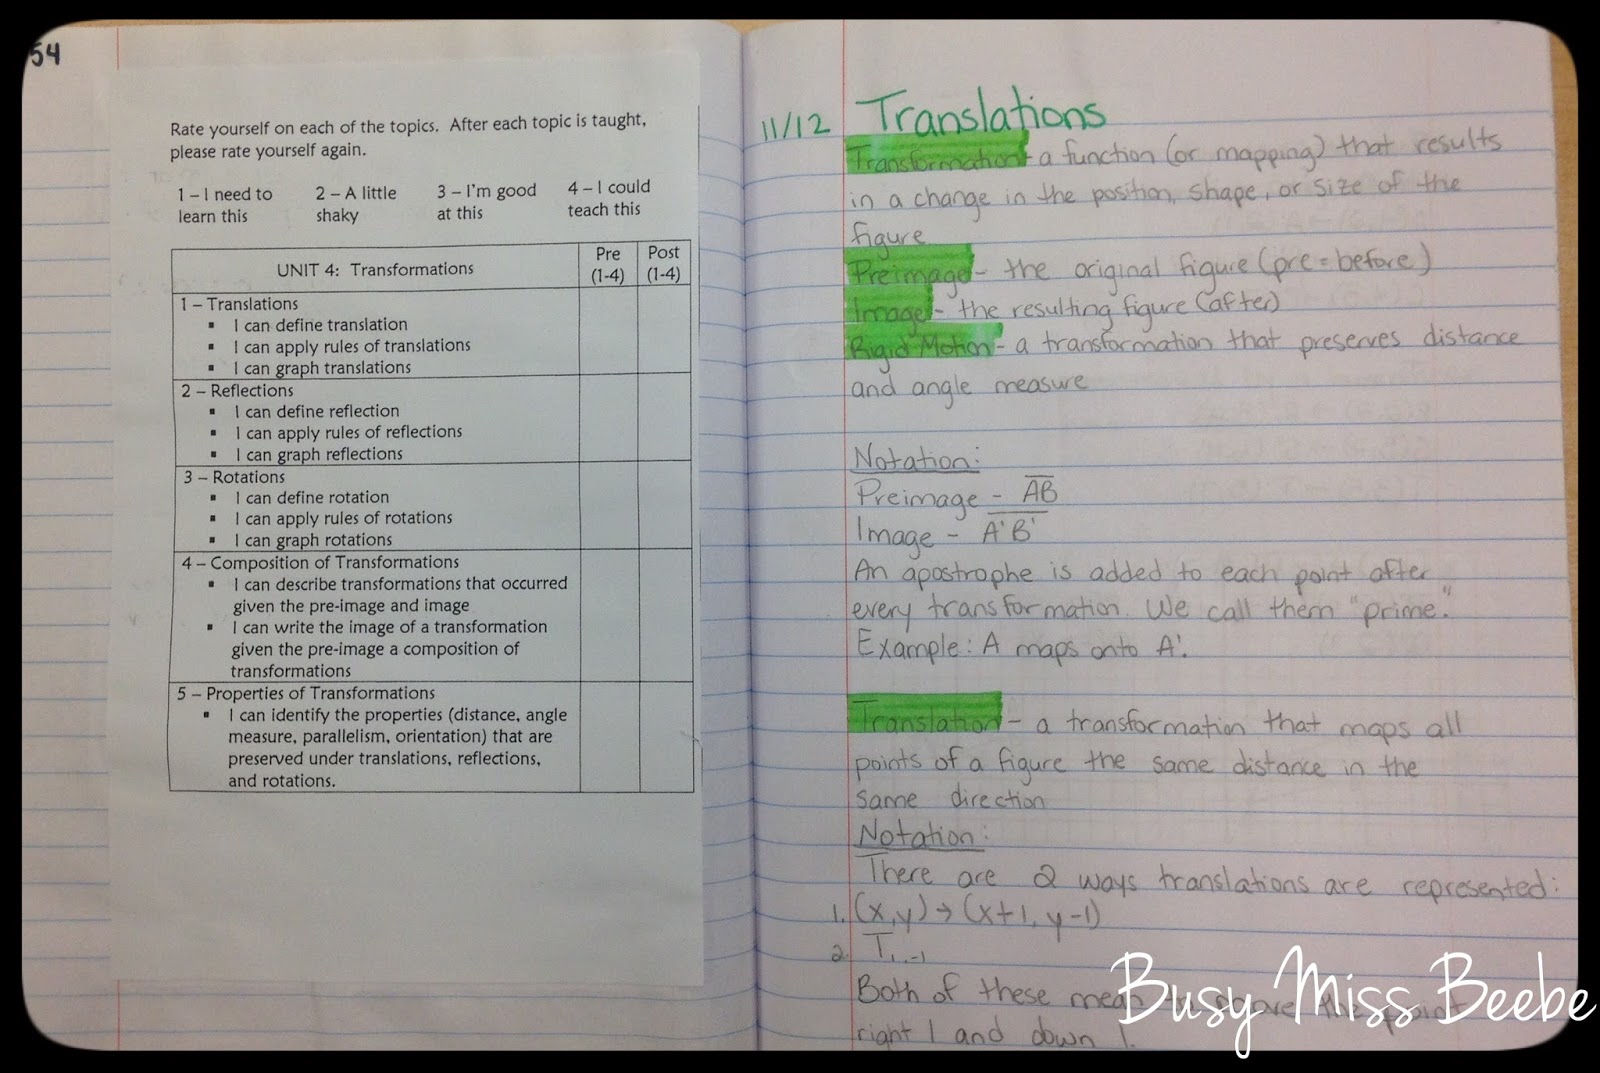 54
Rate yourself on each of the topics. After each topic is taught,
please rate yourself again.
1 – I need to learn this
2 – A little shaky
3 – I'm good at this
4 – I could teach this
UNIT 4: Transformations
Pre (1-4)
Post (1-4)
1 – Translations
▪ I can define translation
▪ I can apply rules of translations
▪ I can graph translations
2 – Reflections
▪ I can define reflection
▪ I can apply rules of reflections
▪ I can graph reflections
3 – Rotations
▪ I can define rotation
▪ I can apply rules of rotations
▪ I can graph rotations
4 – Composition of Transformations
▪ I can describe transformations that occurred
given the pre-image and image
▪ I can write the image of a transformation
given the pre-image a composition of
transformations
5 – Properties of Transformations
▪ I can identify the properties (distance, angle
measure, parallelism, orientation) that are
preserved under translations, reflections,
and rotations.
11/12 Translations
Transformation - a function (or mapping) that results
in a change in the position, shape, or size of the
figure
Preimage - the original figure (pre = before)
Image - the resulting figure (after)
Rigid Motion - a transformation that preserves distance
and angle measure
Notation:
Preimage - A̅B̅
Image - A̅'B̅'
An apostrophe is added to each point after
every transformation. We call them "prime."
Example: A maps onto A'.
Translation - a transformation that maps all
points of a figure the same distance in the
same direction
Notation:
There are 2 ways translations are represented:
1. (x,y) → (x+1, y-1)
2. T₁,₋₁
Both of these mean the point
right 1 and down 1.
Busy Miss Beebe